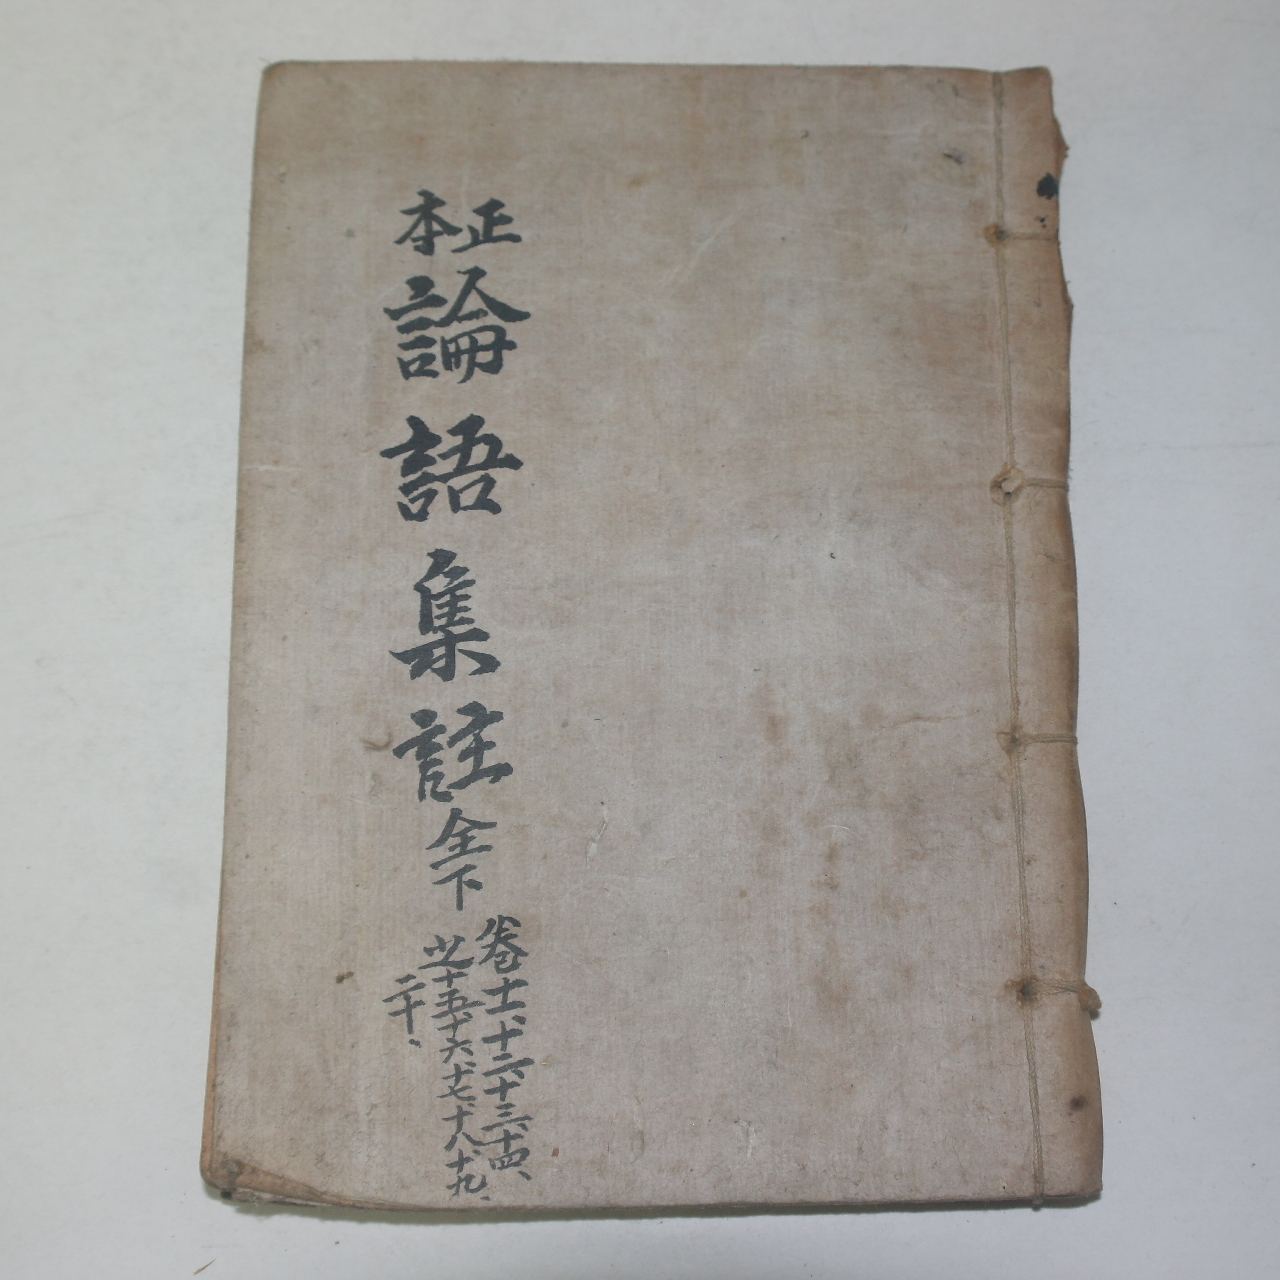 正本
論語集註全下
卷十一、十二、十三、十四、
之十五、十六、十七、十八、十九、
二十、